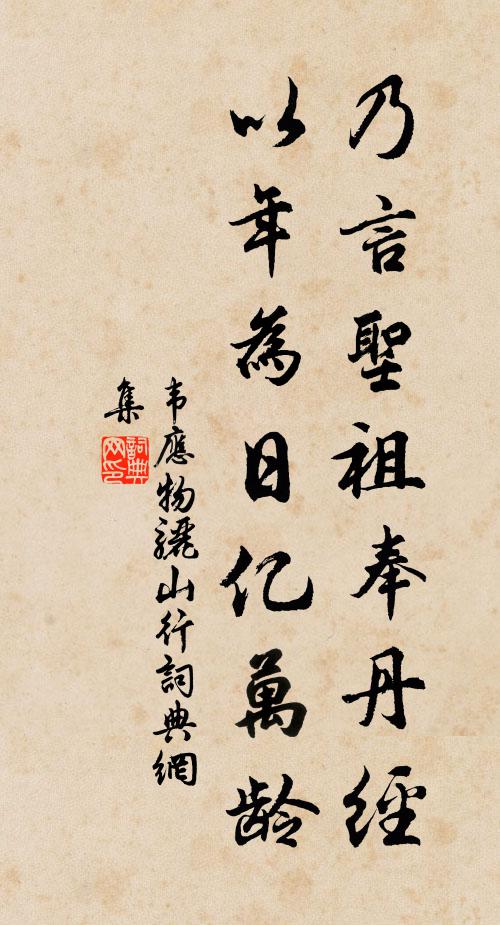 乃言聖祖奉丹經
以年為日亿萬龄
韦應物骊山行詞典網
集
詞典
网印